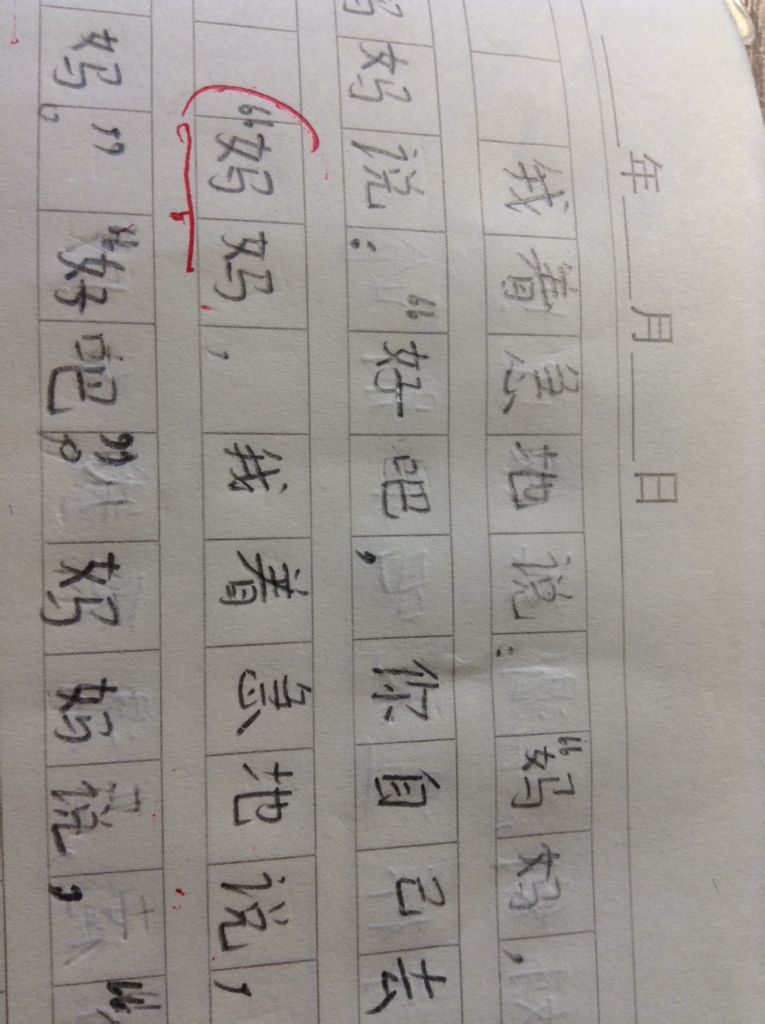 年 月 日
我着急地说：“妈妈，
妈妈说：“好吧，你自己去
“妈妈，我着急地说，
妈。”“好吧。”妈妈说，“